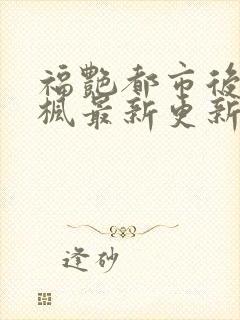 福艷都市後
楓最新更新
逢砂